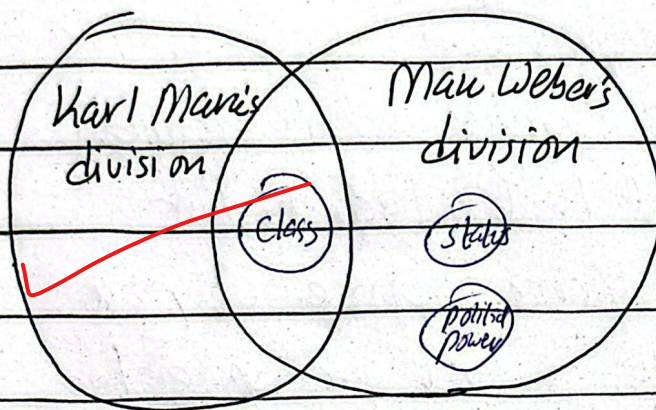 Karl Marx's
division
Max Weber's
division
class
status
political
power